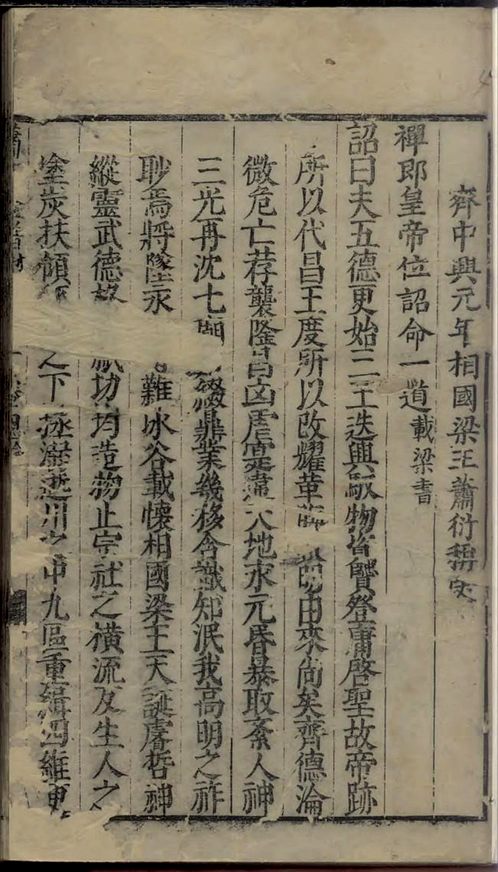 齊中興元年相國梁王蕭衍稱
禪即皇帝位詔命一道載梁書
詔曰夫五德更始三王迭興馭物資賢登庸啓聖故帝跡
所以代昌王度所以改耀革 由來尚矣齊德淪
微危亡荐襲隆昌凶虐寔違天地永元昏暴取紊人神
三光再沈七廟 綴鼎業幾移含識知泯我高明之祚
眇焉將墜永 難冰谷載懷相國梁王天誕睿哲神
縱靈武德 功均造物止宗社之橫流反生人之
塗炭扶傾 之下拯溺逝川之中九區重緝四維更